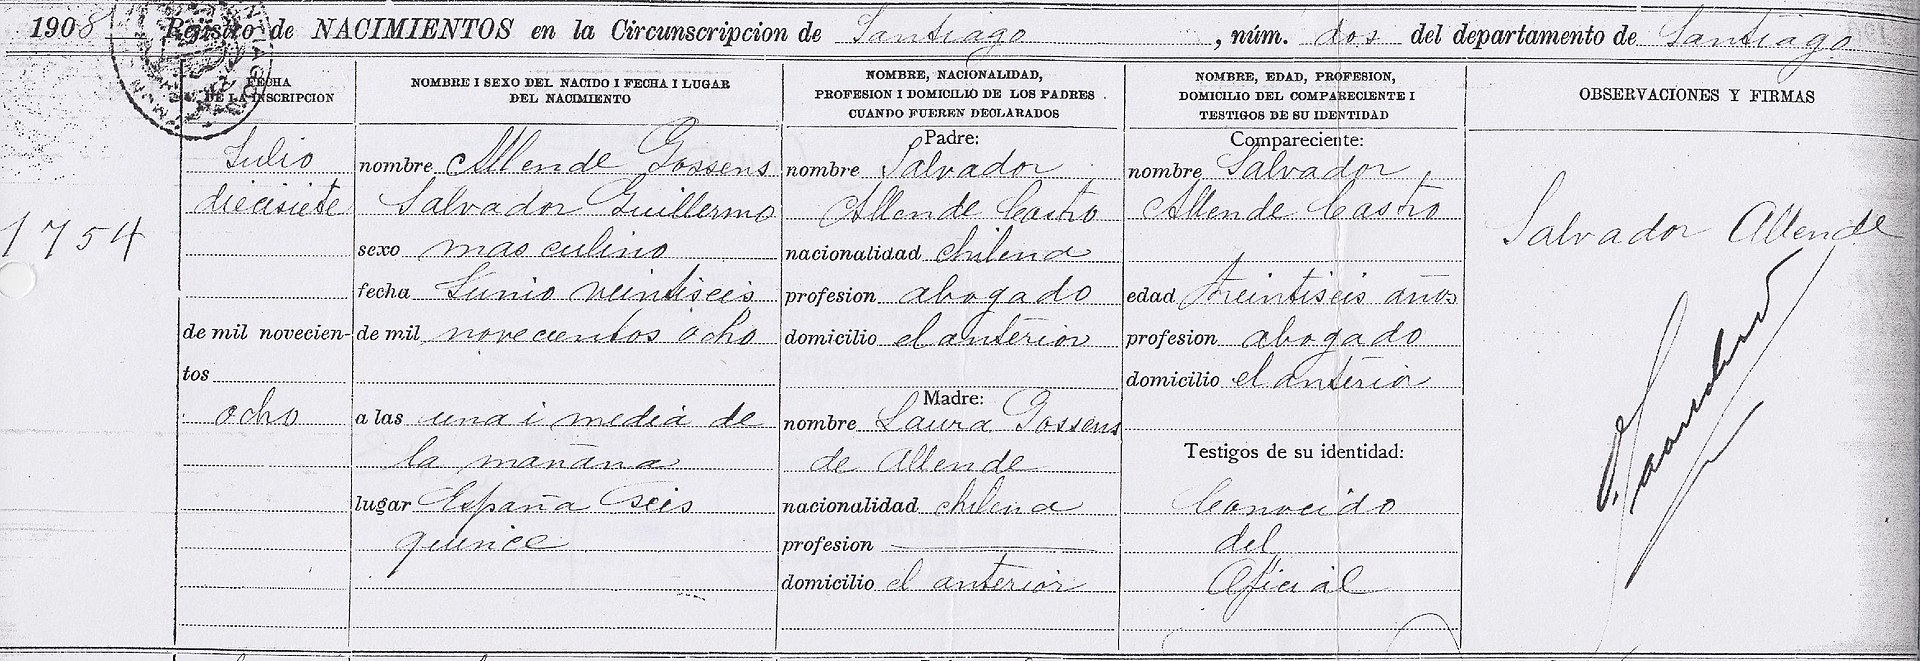 1908 Rejistro de NACIMIENTOS en la Circunscripcion de Santiago, núm. dos del departamento de Santiago
FECHA
DE LA INSCRIPCION
NOMBRE I SEXO DEL NACIDO I FECHA I LUGAR
DEL NACIMIENTO
NOMBRE, NACIONALIDAD,
PROFESION I DOMICILIO DE LOS PADRES
CUANDO FUEREN DECLARADOS
NOMBRE, EDAD, PROFESION,
DOMICILIO DEL COMPARECIENTE I
TESTIGOS DE SU IDENTIDAD
OBSERVACIONES Y FIRMAS
1754
Julio
diecisiete
de mil novecien-
tos
ocho
nombre Allende Gossens
Salvador Guillermo
sexo masculino
fecha Junio veintiseis
de mil novecientos ocho
a las una i media de
la mañana
lugar España seis
quince
Padre:
nombre Salvador
Allende Castro
nacionalidad chilena
profesion abogado
domicilio el anterior
Madre:
nombre Laura Gossens
de Allende
nacionalidad chilena
profesion
domicilio el anterior
Compareciente:
nombre Salvador
Allende Castro
edad treintiseis años
profesion abogado
domicilio el anterior
Testigos de su identidad:
Conocido
del
Oficial
Salvador Allende